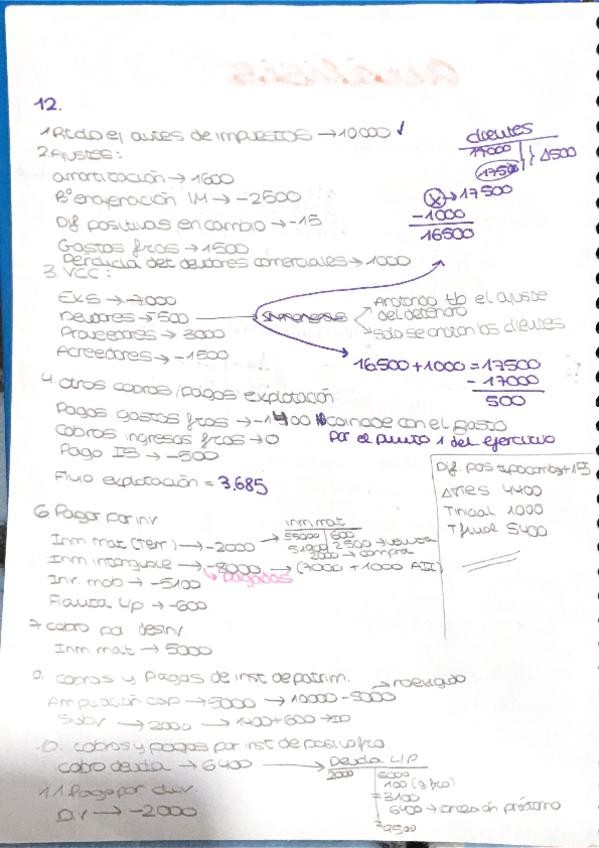 12.
1 Rtdo ej antes de impuestos → 10000 ✓
2. Ajustes:
amortización → 1600
Bº enajenación IM → -2500
Dif positivas en cambio → -15
Gastos fros → 1500
Pérdida det deudores comerciales → 1000
clientes
17000
17500 } Δ500
X → 17500
-1000
16500
3. VCC:
EXS → -7000
Deudores → -500
Proveedores → 3000
Acreedores → -1500
Anotando tb el ajuste
del deterioro
Solo se anotan los clientes
16.500 + 1000 = 17500
- 17000
500
4. otros cobros/pagos explotación
Pagos gastos fros → -1400 coincide con el gasto
Cobros ingresos fros → 0 por el punto 1 del ejercicio
Pago IS → -500
Flujo explotación = 3.685
Dif pos tipo cambio +15
ΔTES 4400
T inicial 1000
T final 5400
6 Pagos por inv
Inm mat (Terr) → -2000
Inm intangible → -8000 → (7000 + 1000 AII)
pagadas
Inv. mob → -5100
Fianza L/p → -600
inm mat
55000 | 600
51900 2500 → venta
2000 → compra
7 cobro por desinv.
Inm mat → 5000
9. cobros y pagos de inst de patrim.
no exigido
Ampliación cap → 5000 → 10000 - 5000
Subv → 2000 → 1400 + 600 →
10. cobros y pagos por inst de pasivo fro
cobro deuda → 6400
Deuda L/P
2000 | 5000
100 (g fro)
= 3100
6400 → creación préstamo
= 9500
11. Pago por div.
Div → -2000